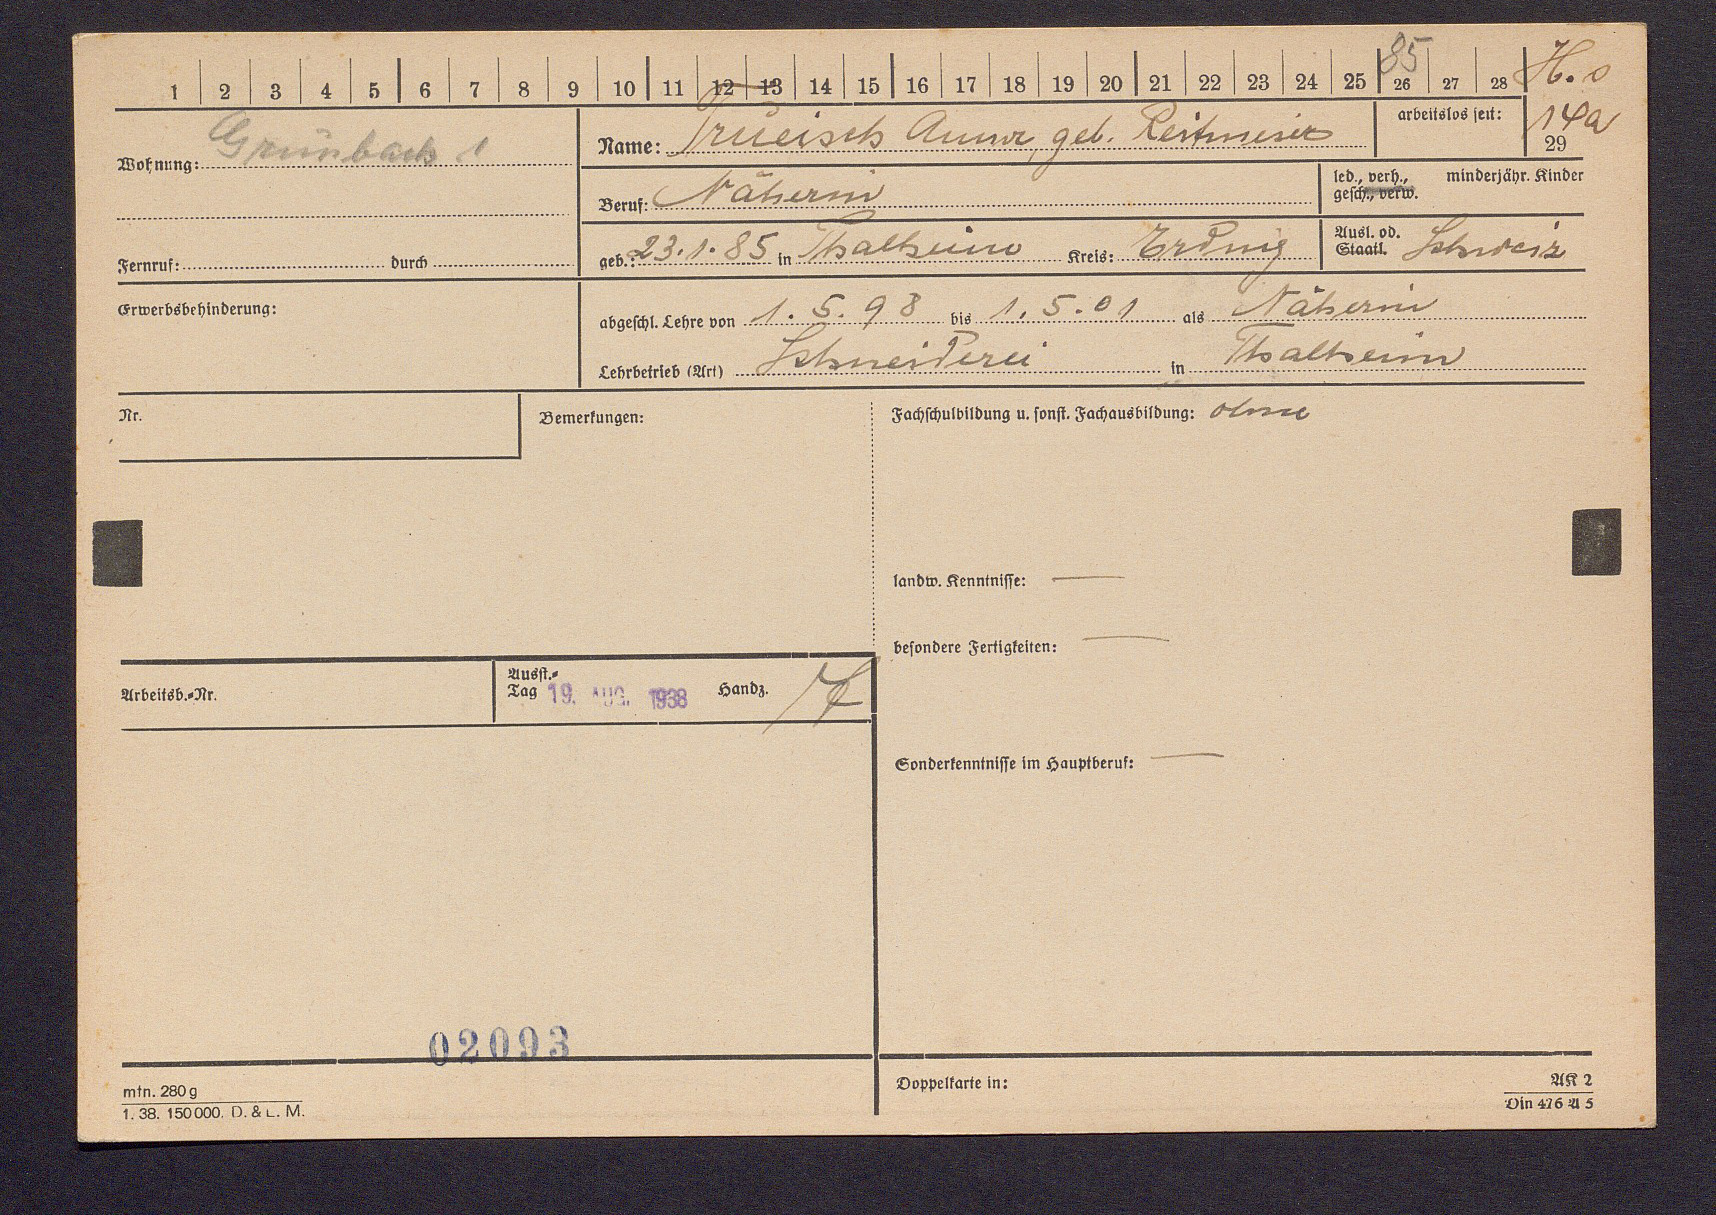 1 2 3 4 5 6 7 8 9 10 11 12 13 14 15 16 17 18 19 20 21 22 23 24 25 26 27 28 H. o
85
Wohnung: Grünbach 1
Name: Anna, geb. Reitmeier
arbeitslos seit:
14a
29
Beruf: Näherin
led., verh., minderjähr. Kinder
gesch., verw.
Fernruf: durch
geb.: 23.1.85 in Thalheim Kreis: Erding
Ausl. od. Staatl. Schweiz
Erwerbsbehinderung:
abgeschl. Lehre von 1.5.98 bis 1.5.01 als Näherin
Lehrbetrieb (Art) Schneiderei in Thalheim
Nr.
Bemerkungen:
Fachschulbildung u. sonst. Fachausbildung: ohne
landw. Kenntnisse: —
besondere Fertigkeiten: —
Arbeitsb.-Nr.
Ausst.-
Tag 19. AUG. 1938 Handz.
Sonderkenntnisse im Hauptberuf: —
02093
mtn. 280 g
1. 38. 150000. D. & L. M.
Doppelkarte in:
AK 2
Din 476 A 5